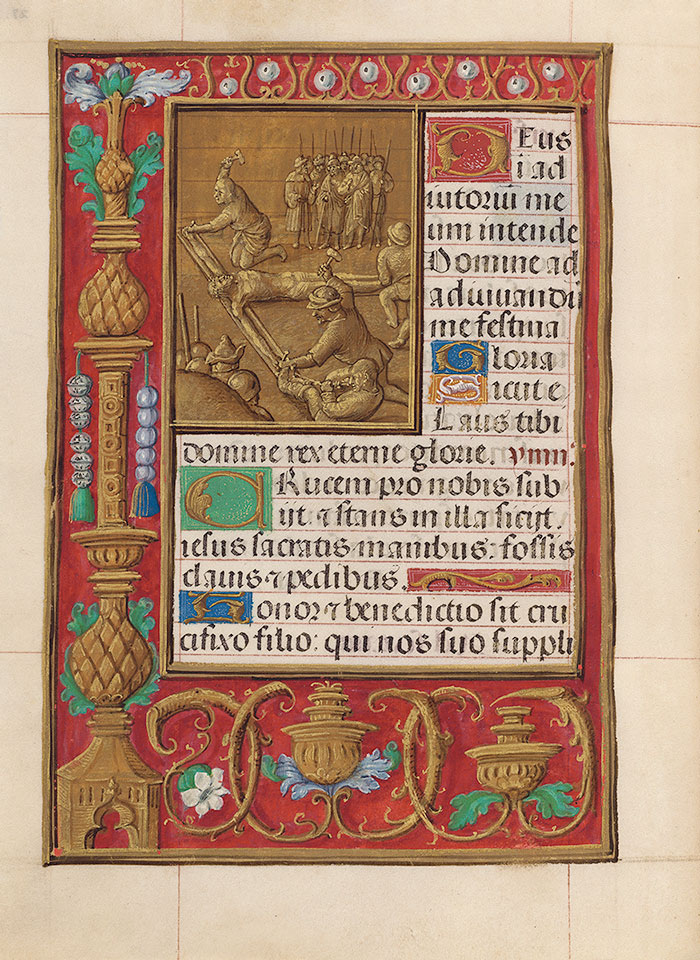 DEus
i ad
iutoriū me
um intende
Domine ad
adiuuandū
me festina
Gloria
Sicut e
Laus tibi
domine rex eterne glorie. ymnꝰ.
CRucem pro nobis sub
ijt. ⁊ stans in illa sicijt.
iesus sacratis manibus: fossis
clauis ⁊ pedibus.
Honor ⁊ benedictio sit cru
cifixo filio: qui nos suo suppli